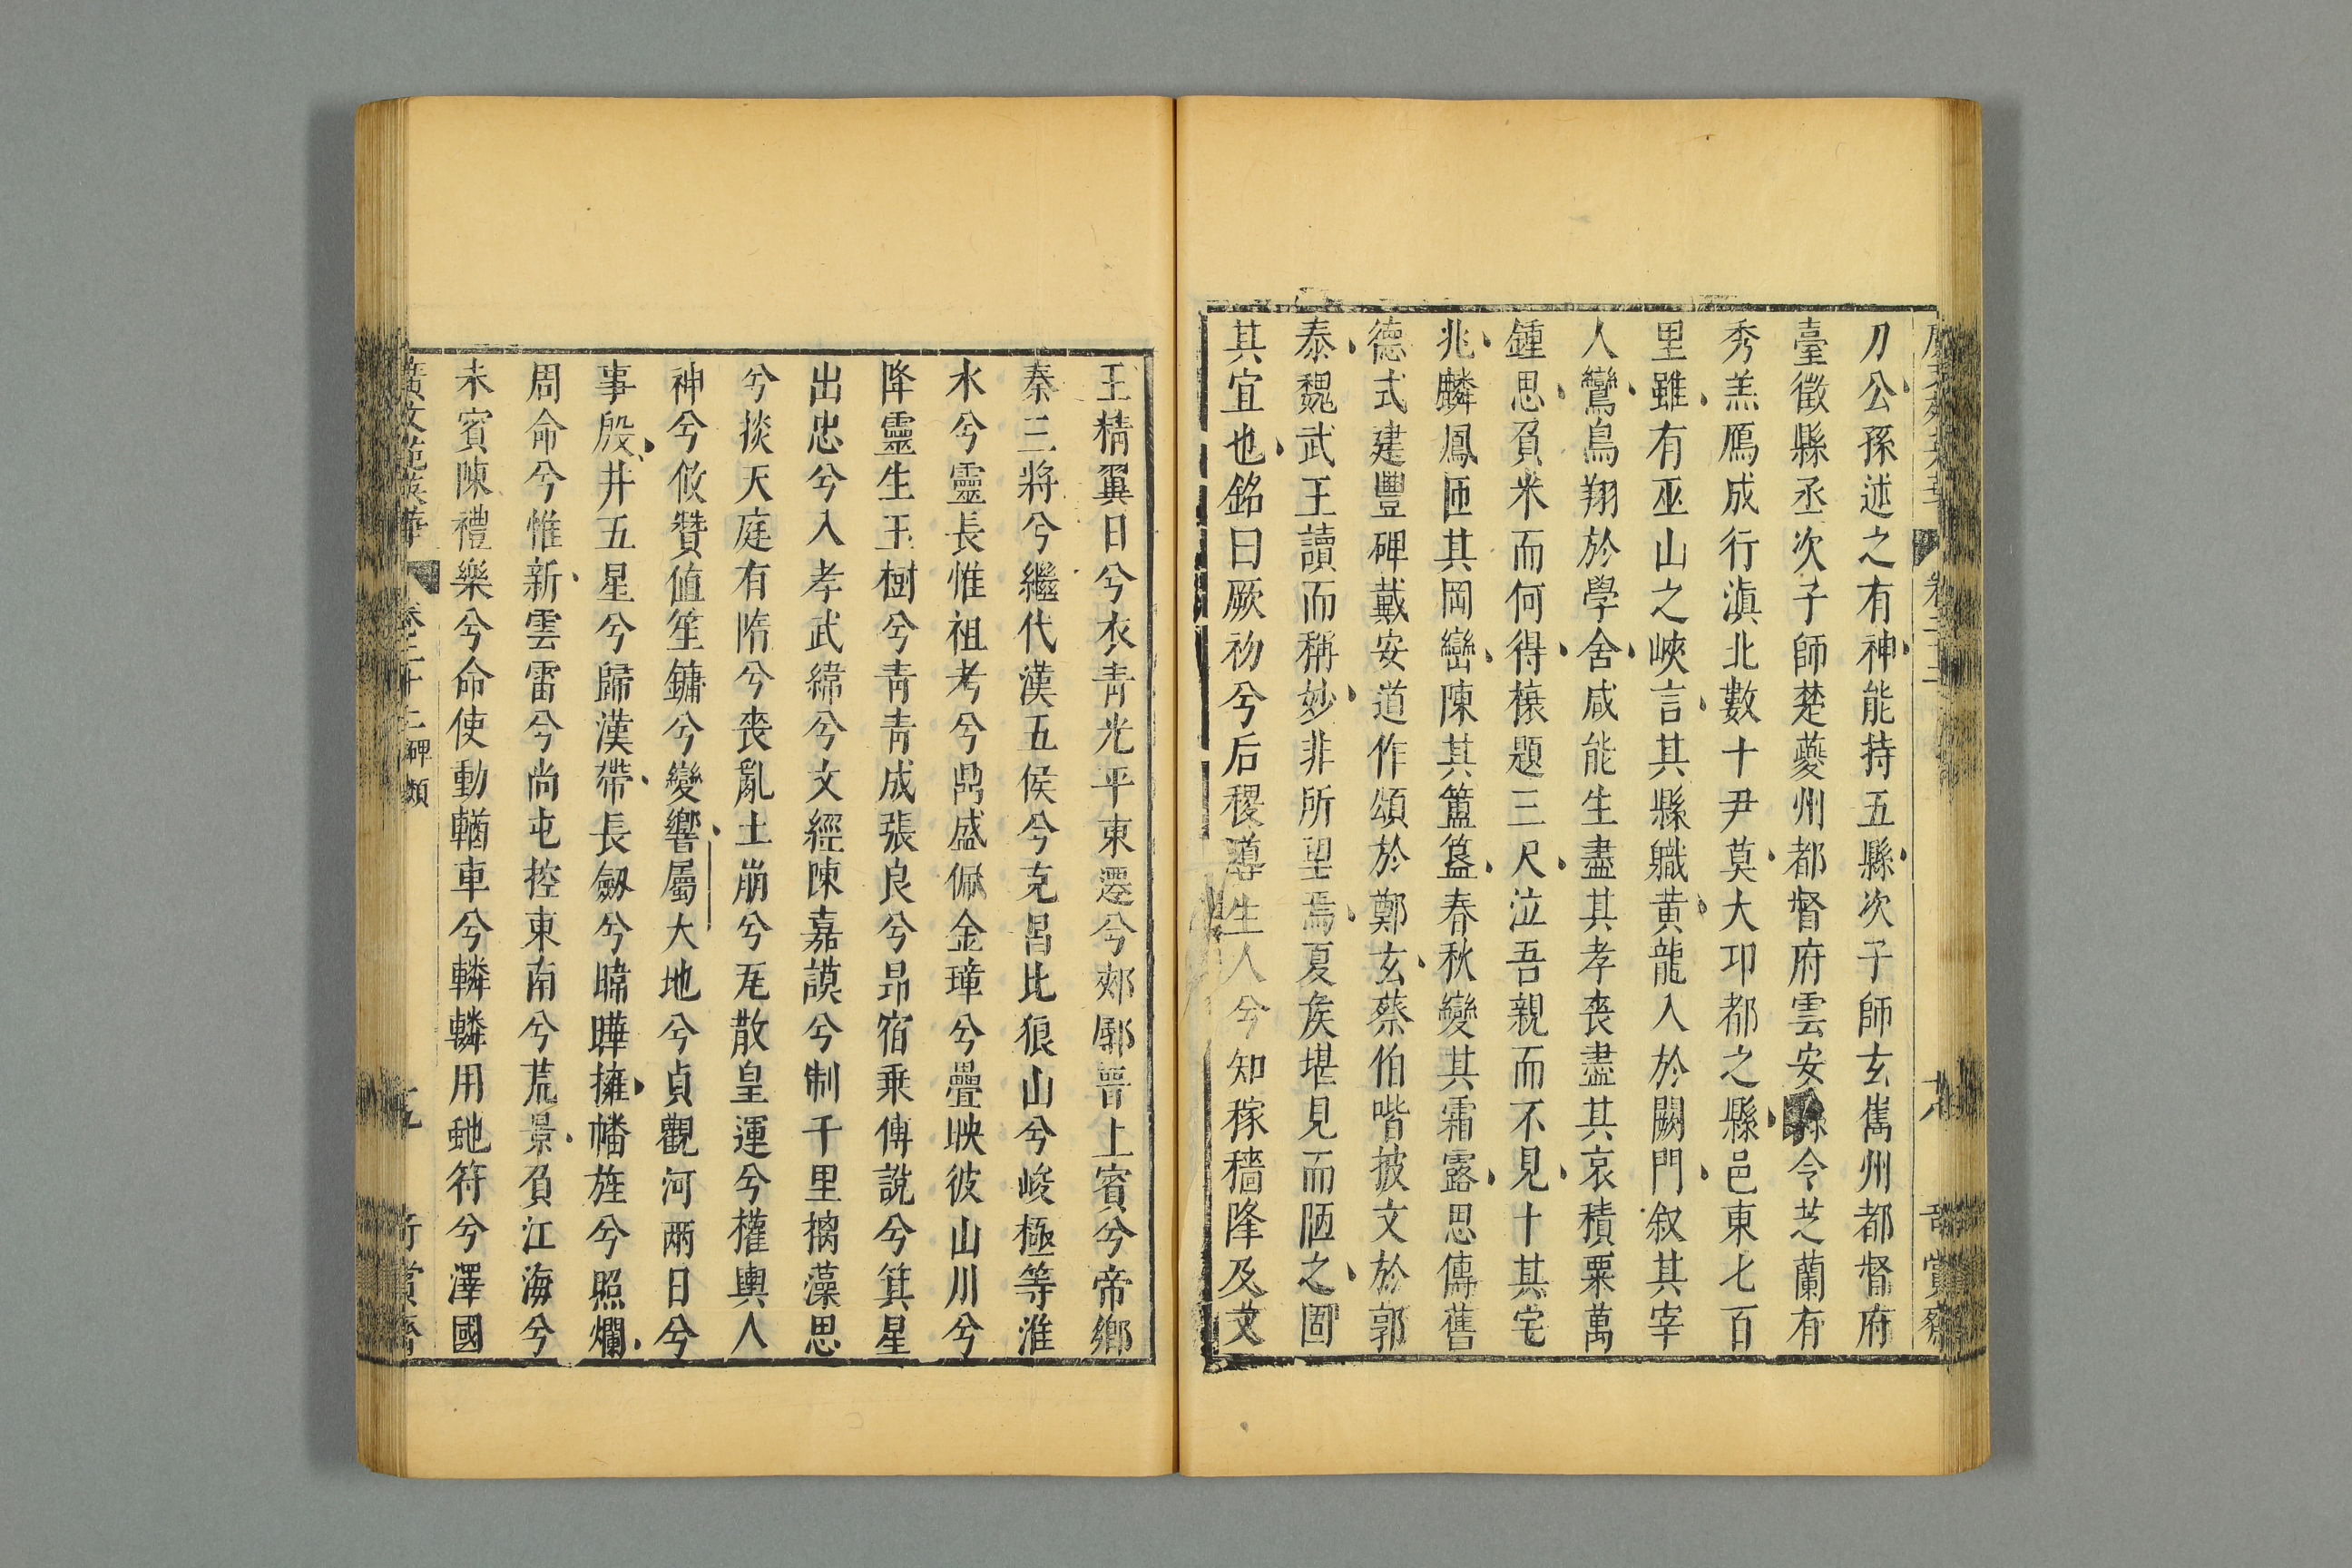 刀公孫述之有神能持五縣次子師玄雟州都督府
臺徵縣丞次子師楚夔州都督府雲安縣令芝蘭有
秀羔鴈成行滇北數十尹莫大邛都之縣邑東七百
里雖有巫山之峽言其縣職黃龍入於闕門叙其宰
人鸞鳥翔於學舍咸能生盡其孝喪盡其哀積粟萬
鍾思負米而何得榱題三尺泣吾親而不見十其宅
兆麟鳳匝其岡巒陳其簠簋春秋變其霜露思傳舊
德式建豐碑戴安道作頌於鄭玄蔡伯喈披文於郭
泰魏武王讀而稱妙非所望焉夏矦堪見而陋之固
其宜也銘曰厥初兮后稷導生人兮知稼穡降及文
王精翼日兮衣青光平東遷兮郟鄏晉上賓兮帝鄉
秦三將兮繼代漢五侯兮克昌比狼山兮峻極等淮
水兮靈長惟祖考兮鼎盛佩金璋兮疊映彼山川兮
降靈生玉樹兮青青成張良兮昴宿乘傳說兮箕星
出忠兮入孝武緯兮文經陳嘉謨兮制千里摛藻思
兮掞天庭有隋兮喪亂土崩兮瓦散皇運兮權輿人
神兮攸贊値笙鏞兮變響屬大地兮貞觀河兩日兮
事殷井五星兮歸漢帶長劔兮暐曄擁幡旌兮照爛
周命兮惟新雲雷兮尚屯控東南兮荒景負江海兮
未賓陳禮樂兮命使動輶車兮轔轔用虵符兮澤國
廣文苑英華 卷二十二 碑類 十九 奇賞齋